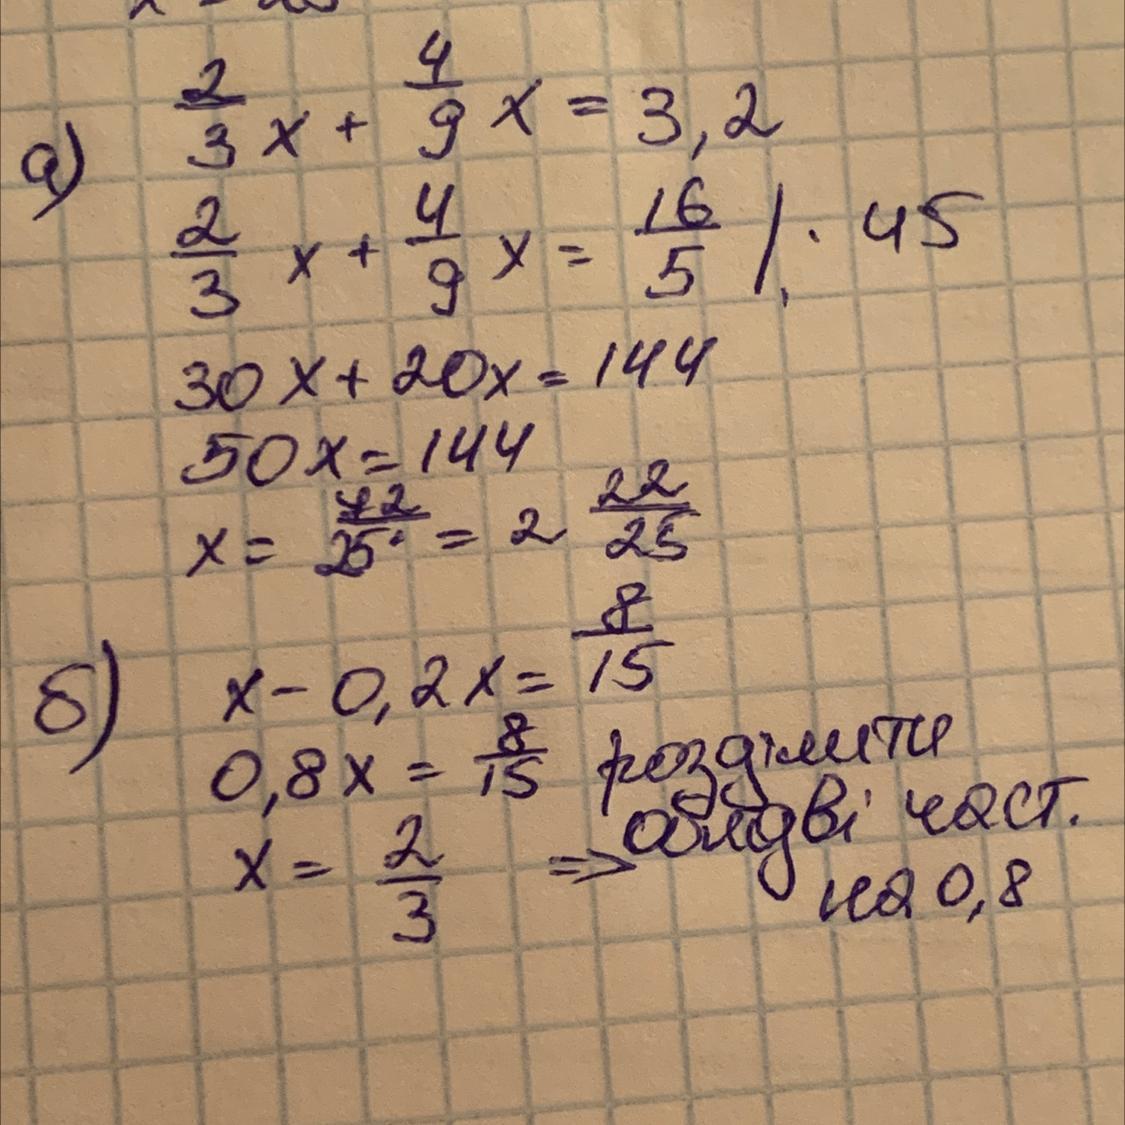 а) 2/3 x + 4/9 x = 3,2
2/3 x + 4/9 x = 16/5 / · 45
30x + 20x = 144
50x = 144
x = 72/25 = 2 22/25
б) x - 0,2x = 8/15
0,8x = 8/15 розділити
x = 2/3 => обидві част.
на 0,8